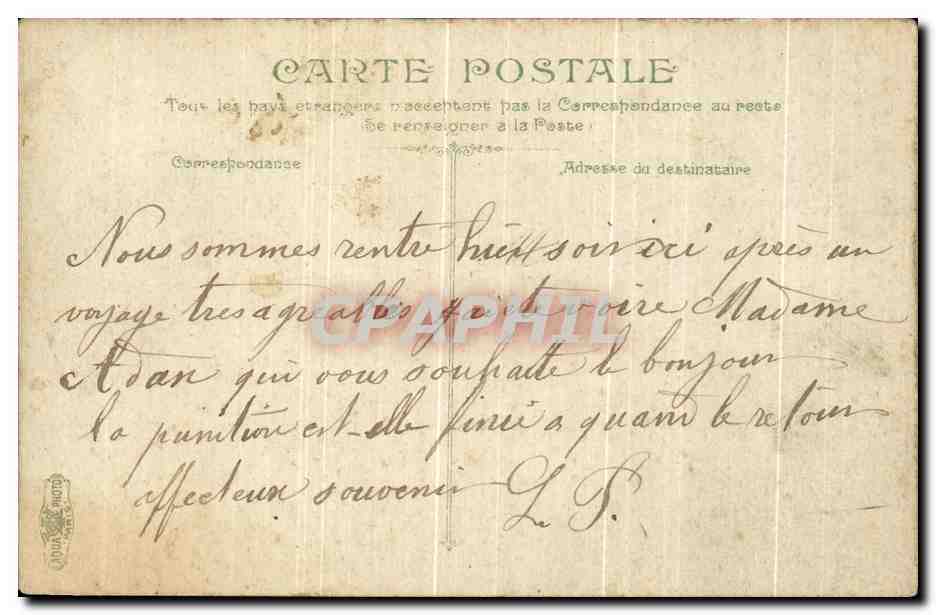 CARTE POSTALE
Tous les pays etrangers n'acceptent pas la Correspondance au recto
(Se renseigner a la Poste)
Correspondance
Adresse du destinataire
Nous sommes rentré soir ici après un
voyage tres agreables j'ai ete voire Madame
Adan qui vous souhaite le bonjour
la punition est-elle finie a quand le retour
affecteux souvenir L. P.
CPAPHIL
AQUA PHOTO
PARIS